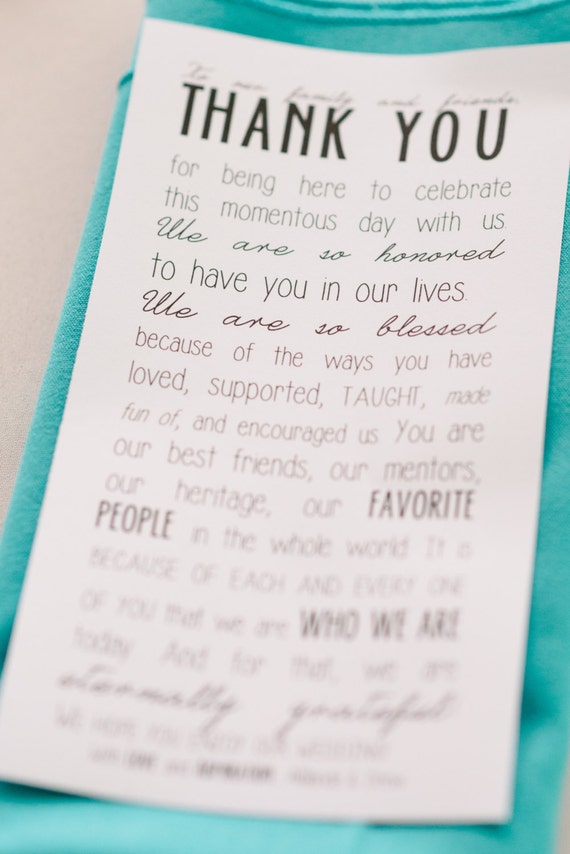 To our family and friends,
THANK YOU
for being here to celebrate
this momentous day with us.
We are so honored
to have you in our lives.
We are so blessed
because of the ways you have
loved, supported, TAUGHT, made
fun of, and encouraged us. You are
our best friends, our mentors,
our heritage, our FAVORITE
PEOPLE in the whole world. It is
BECAUSE OF EACH AND EVERY ONE
OF YOU that we are WHO WE ARE
today. And for that, we are
eternally grateful
We hope you enjoy our wedding
with LOVE and